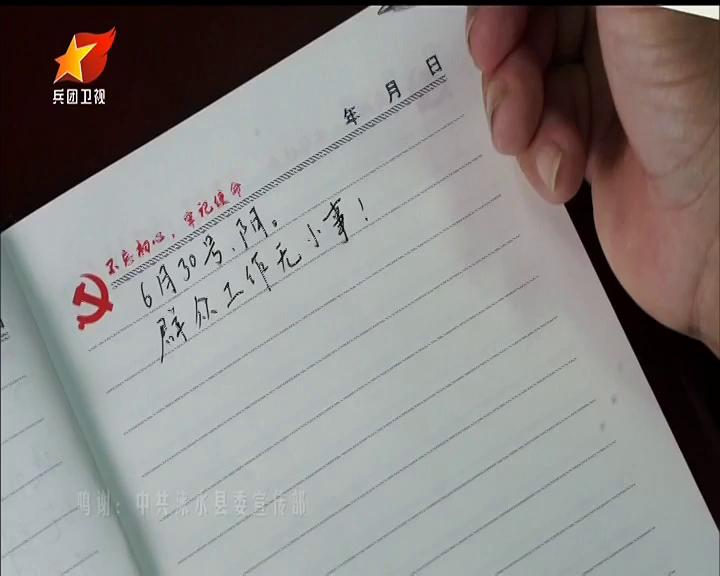 兵团卫视
年 月 日
不忘初心，牢记使命
6月30号、阴。
群众工作无小事！
鸣谢：中共涞水县委宣传部